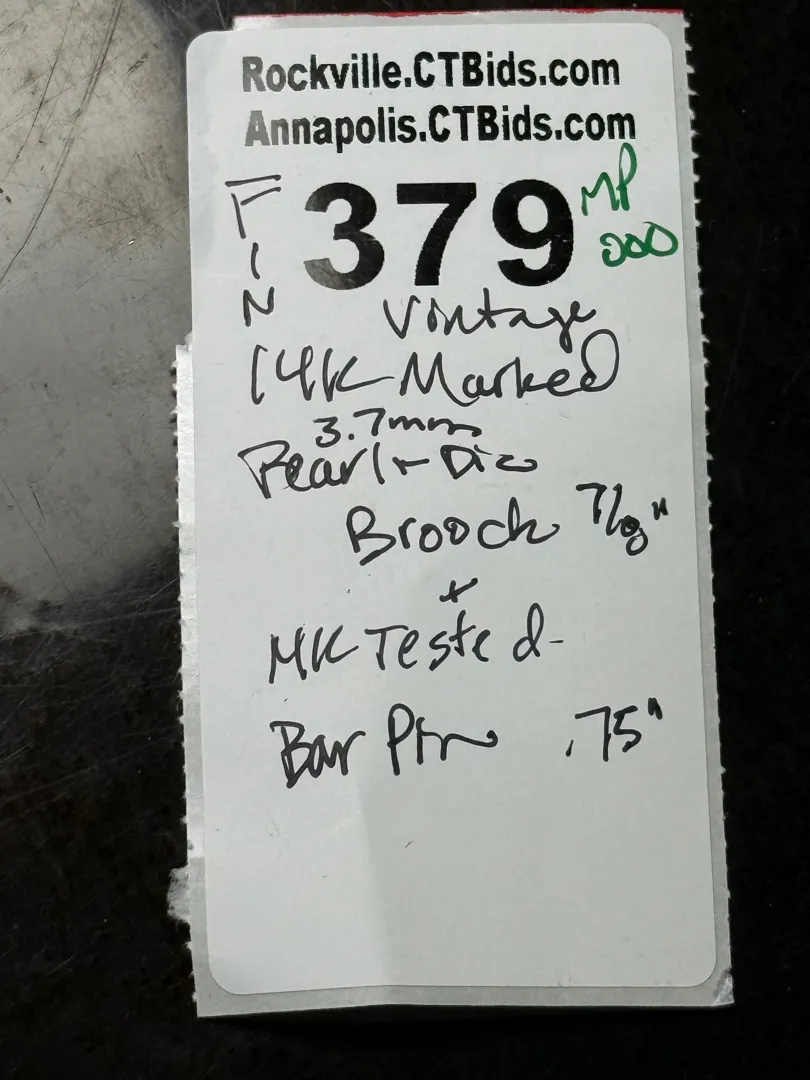 Rockville.CTBids.com
Annapolis.CTBids.com
FIN
379
MP
200
Vintage
14K Marked
3.7mm
Pearl + Dia
Brooch 7/8"
+
14K Tested
Bar Pin .75"